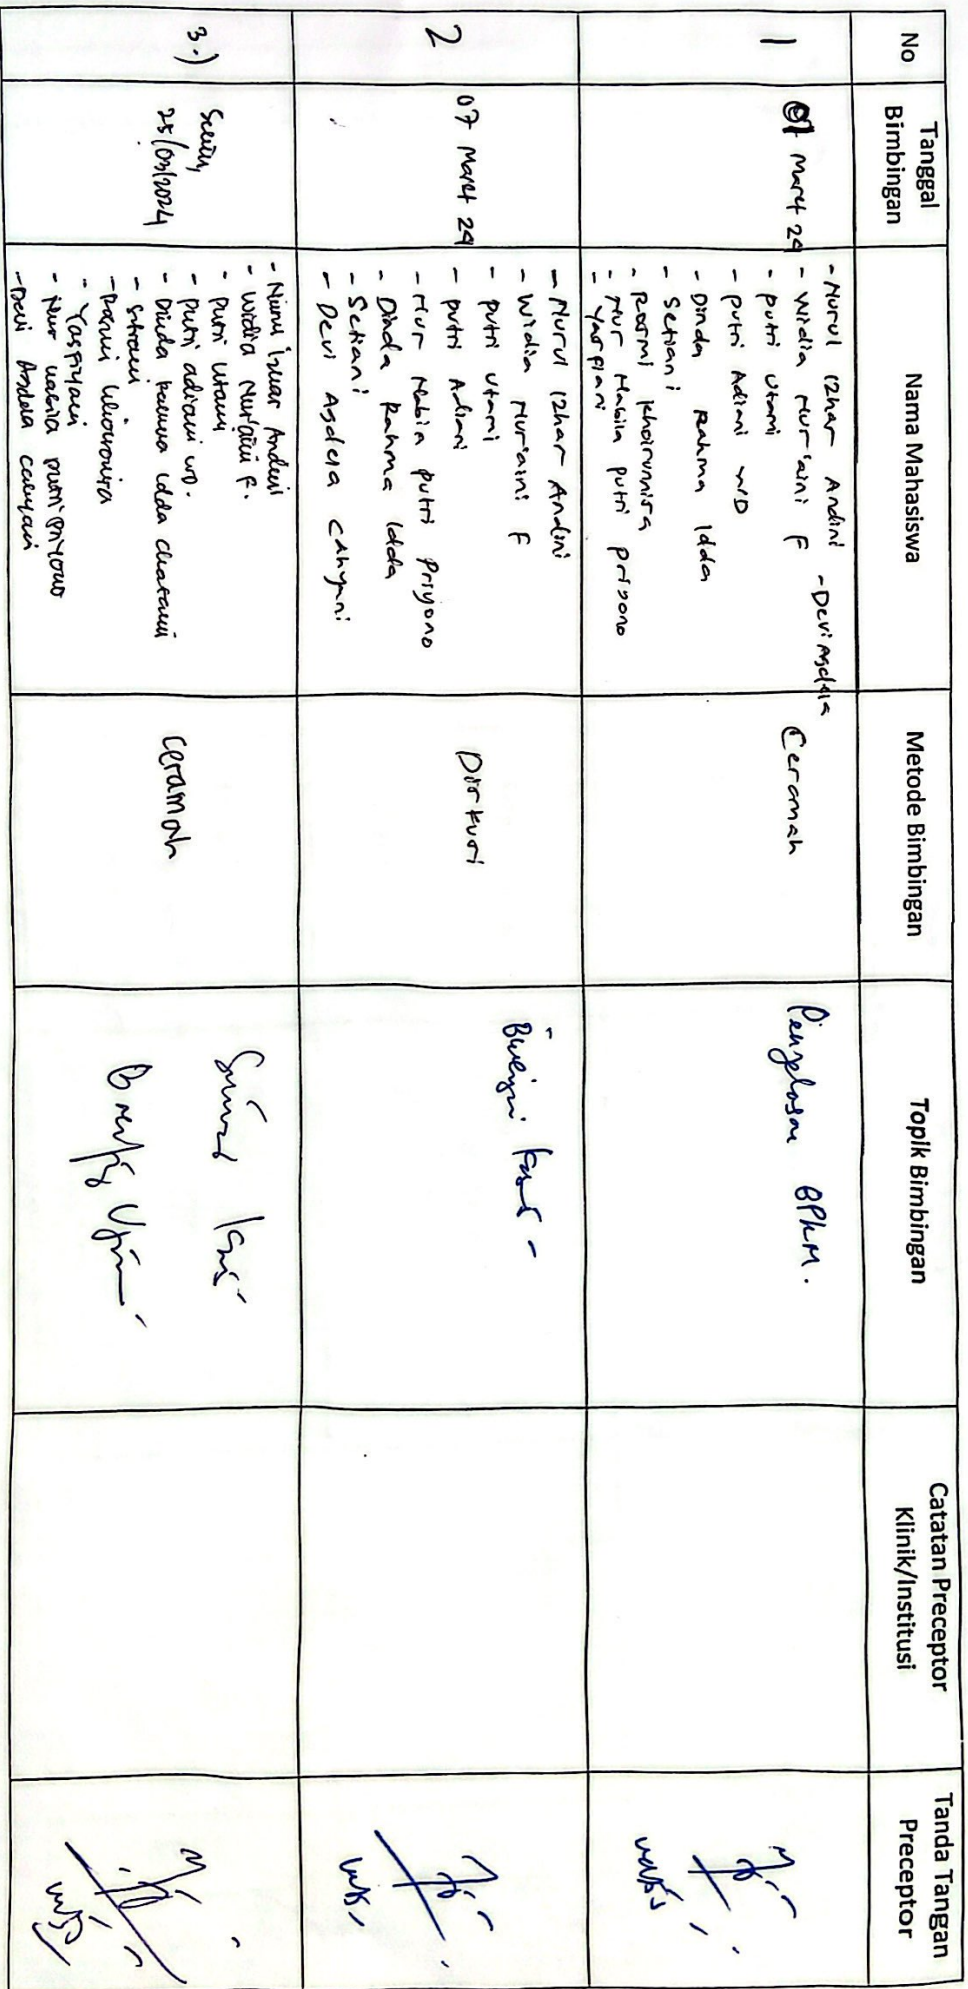 No
Tanggal Bimbingan
Nama Mahasiswa
Metode Bimbingan
Topik Bimbingan
Catatan Preceptor Klinik/Institusi
Tanda Tangan Preceptor
1
01 Maret 24
- Nurul Izhar Andini
- Widia Nur'aini F
- Devi Asdela
- putri Utami
- putri Adiani WD
- Dinda Rahma Idda
- Setiani
- Rosmi Khoirunnisa
- Nur Nabila putri priyono
- Yasfiani
Ceramah
Penjelasan BPKM.
2
07 Maret 24
- Nurul Izhar Andini
- Widia Nur'aini F
- putri Utami
- putri Adiani
- Nur Nabila putri priyono
- Dinda Rahma Idda
- Setiani
- Devi Asdela Cahyani
Diskusi
3.)
Senin,
25/03/2024
- Nurul Izhar Andini
- Widia Nur'aini F.
- Putri Utami
- putri adiani WD.
- Dinda Rahma Idda
- Setiani
- Rosmi khoirunnisa
- Yasfiyani
- Nur nabila putri priyono
- Devi Asdela cahyani
Ceramah